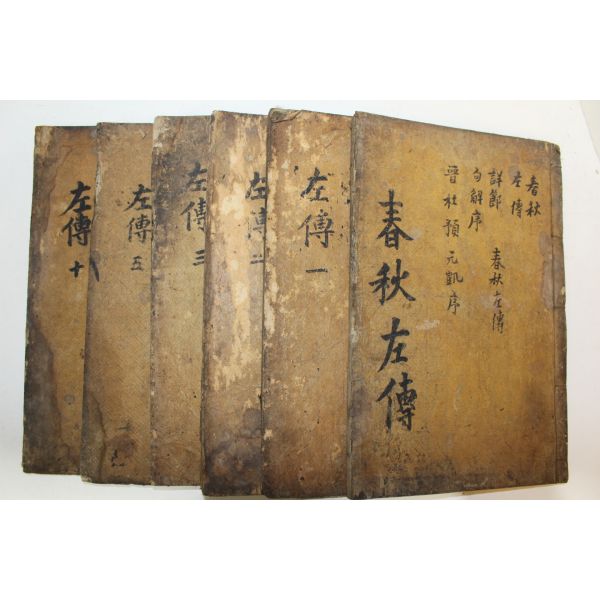 春秋
左傳
詳節
句解序
春秋左傳
晉杜預元凱序
春秋左傳
左傳一
左傳二
左傳三
左傳五
左傳十